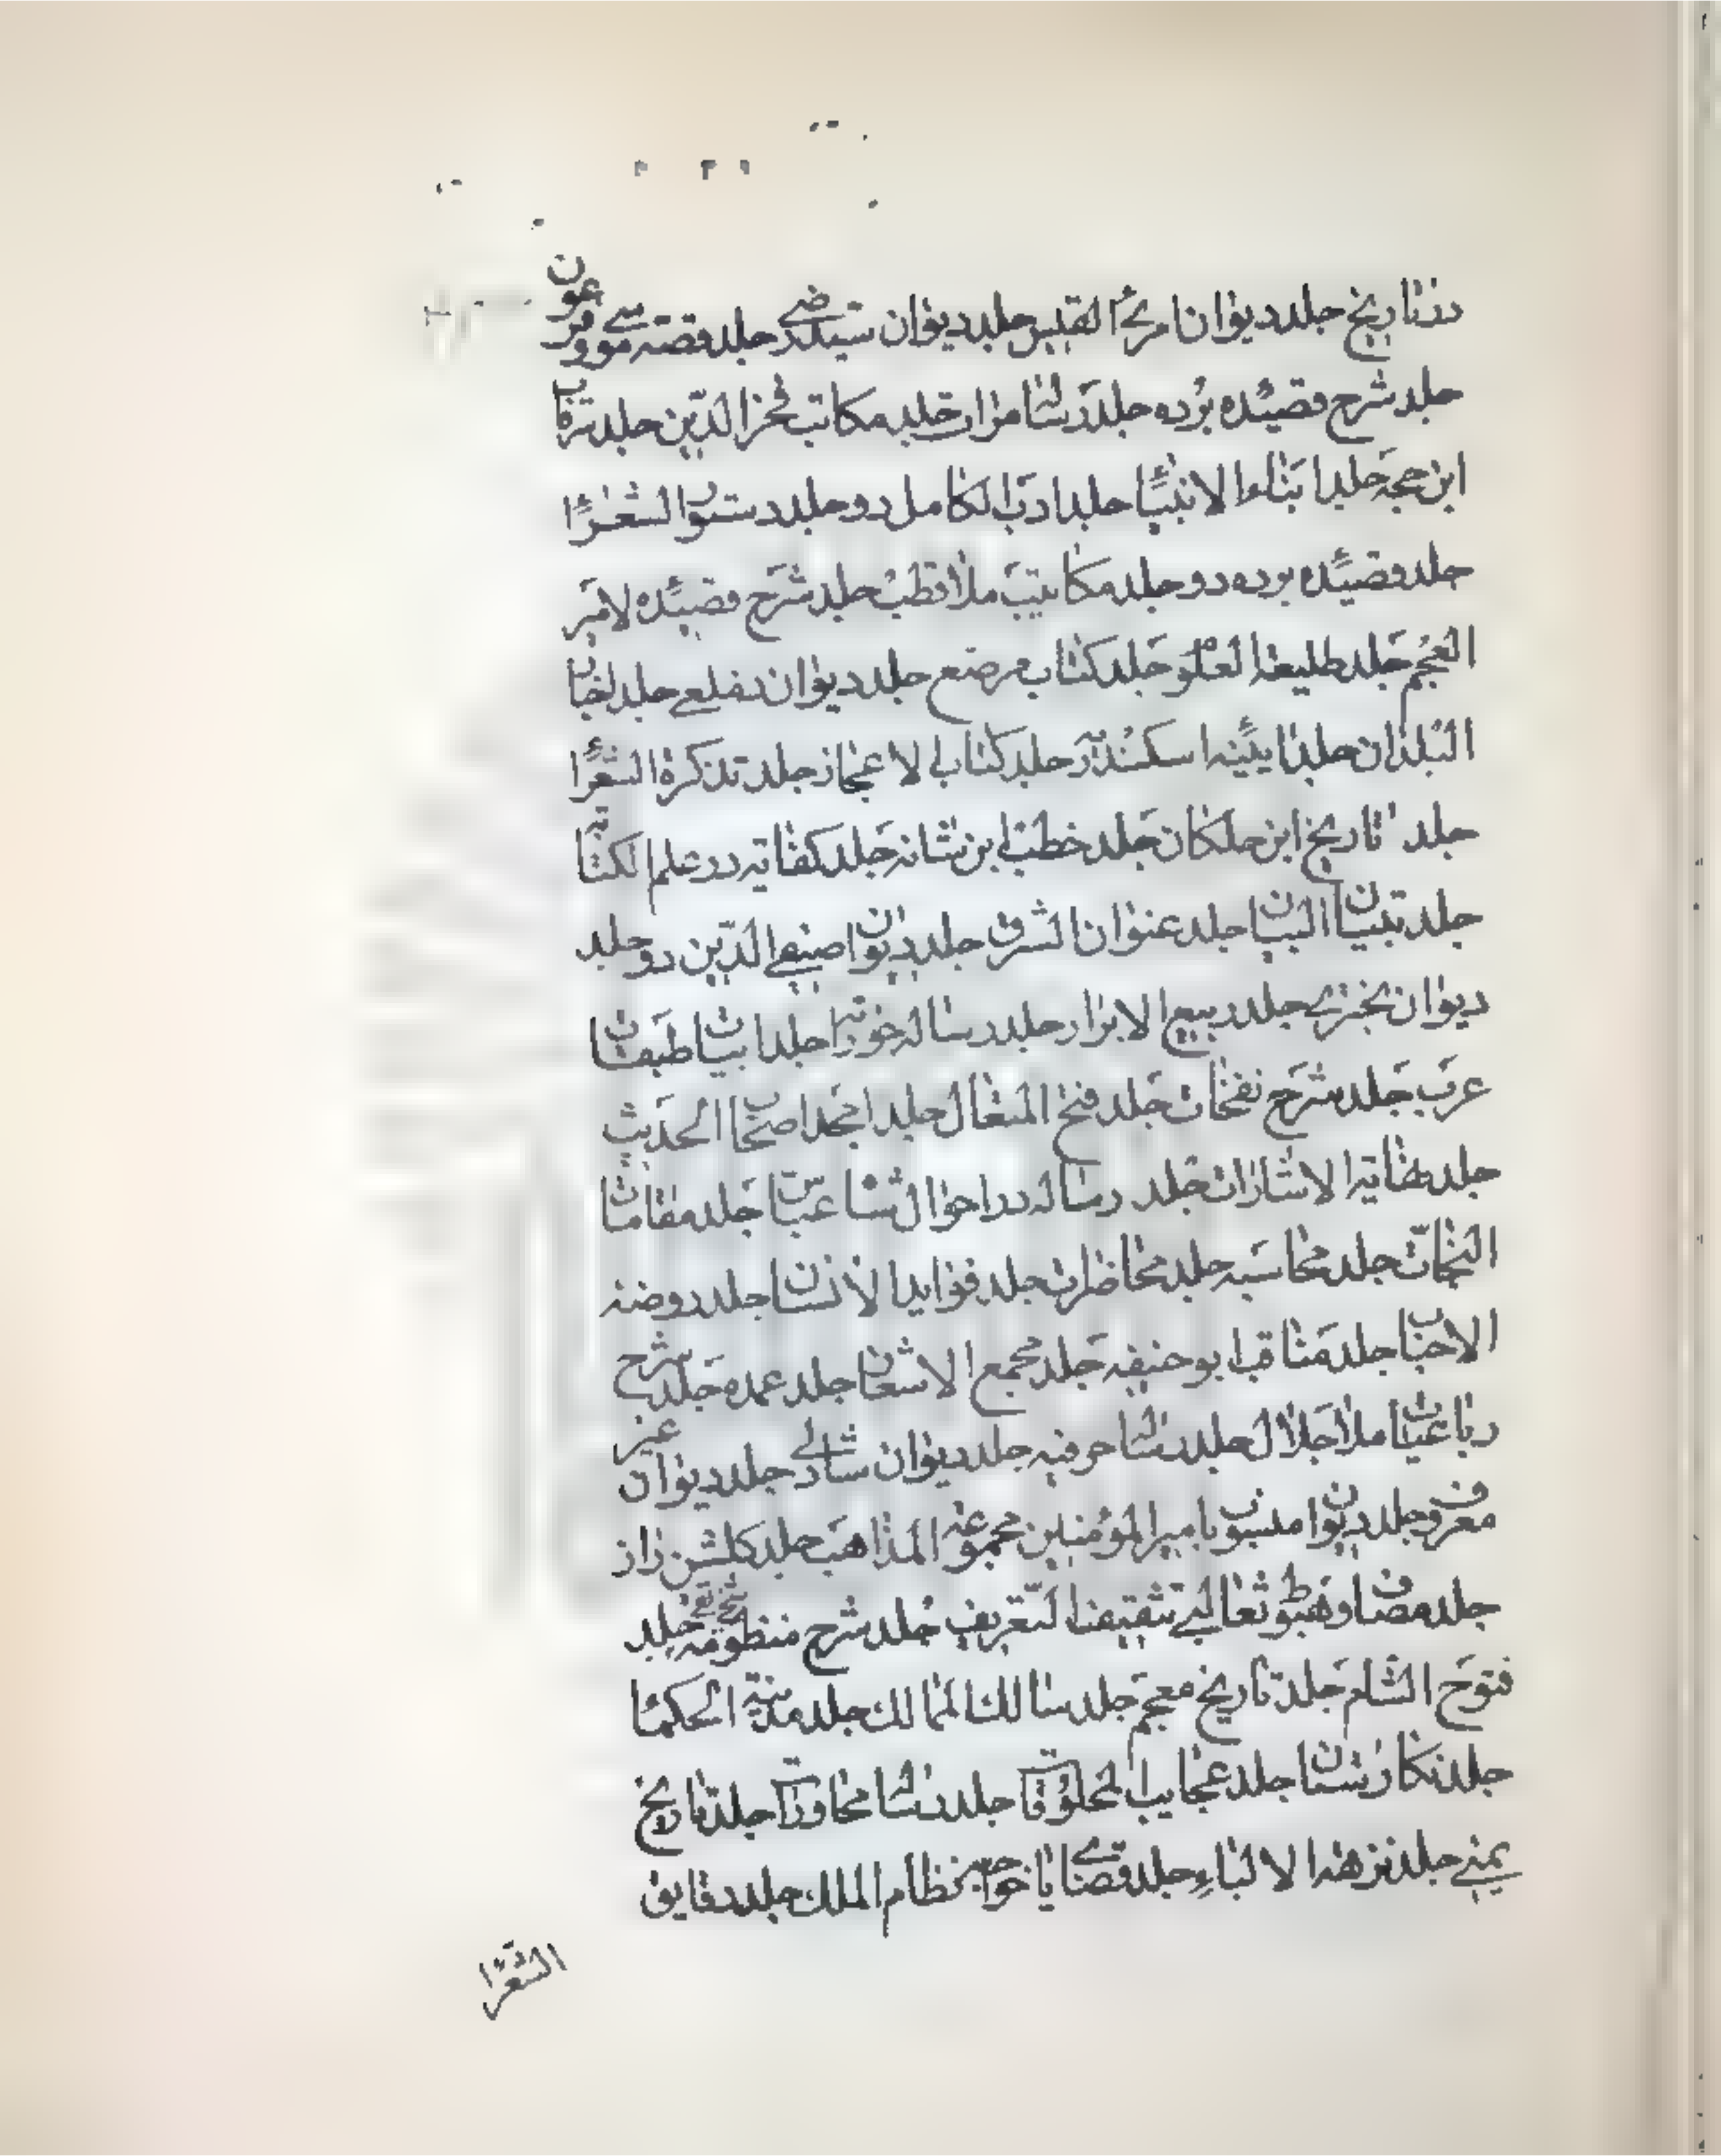 در تاریخ جلد دیوان امرئ القیس جلد دیوان سید رضی جلد قصه موسی و فرعون
جلد شرح قصیده برده جلد رسٰا مزارات جلد مکاتب فخر الدین جلد
ابن حجه جلد ابنٰاء الانبیٰا جلد ادب الکامل دو جلد دستور الشعرا
جلد قصیده برده دو جلد مکاتیب ملا قطب جلد شرح قصیده لامیة
العجم جلد طلیعة العلو جلد کتاب مرصع جلد دیوان جلد اخبار
البلدان جلد ایینه اسکندر جلد کتاب الاعجاز جلد تذکرة الشعرا
جلد تاریخ ابن خلکان جلد خطب ابن نباته جلد کفایه در علم الکتابة
جلد تبیان البیان جلد عنوان الشرف جلد دیوان صفی الدین دو جلد
دیوان بختری جلد ربیع الابرار جلد رساله جلد ابیات طبقات
عرب جلد شرح نفحات جلد فتح المتعال جلد اصحاب الحدیث
جلد الاشارات جلد رساله در احوال شاه عباس جلد مقامات
النجات جلد محاسبه جلد محاضرات جلد فواید الانسان جلد روضة
الاحباب جلد مناقب ابو حنیفه جلد مجمع الاشعار جلد عمده جلد شرح
رباعیات ملا جلال جلد رسا حرفیه جلد دیوان جلد دیوان غیر
معروف جلد دیوان منسوب بامیر المؤمنین مجموعة المذاهب جلد کلشن راز
جلد مضاف و منسوب ثعالبی تثقیف التعریف جلد شرح منظومه جلد
فتوح الشام جلد تاریخ معجم جلد سالک الممالک جلد الحکما
جلد نکارستان جلد عجایب المخلوقات جلد رسا محاورات جلد تاریخ
یمینی جلد نزهة الالباء جلد وصایا خواجه نظام الملک جلد دقایق
الشعرا